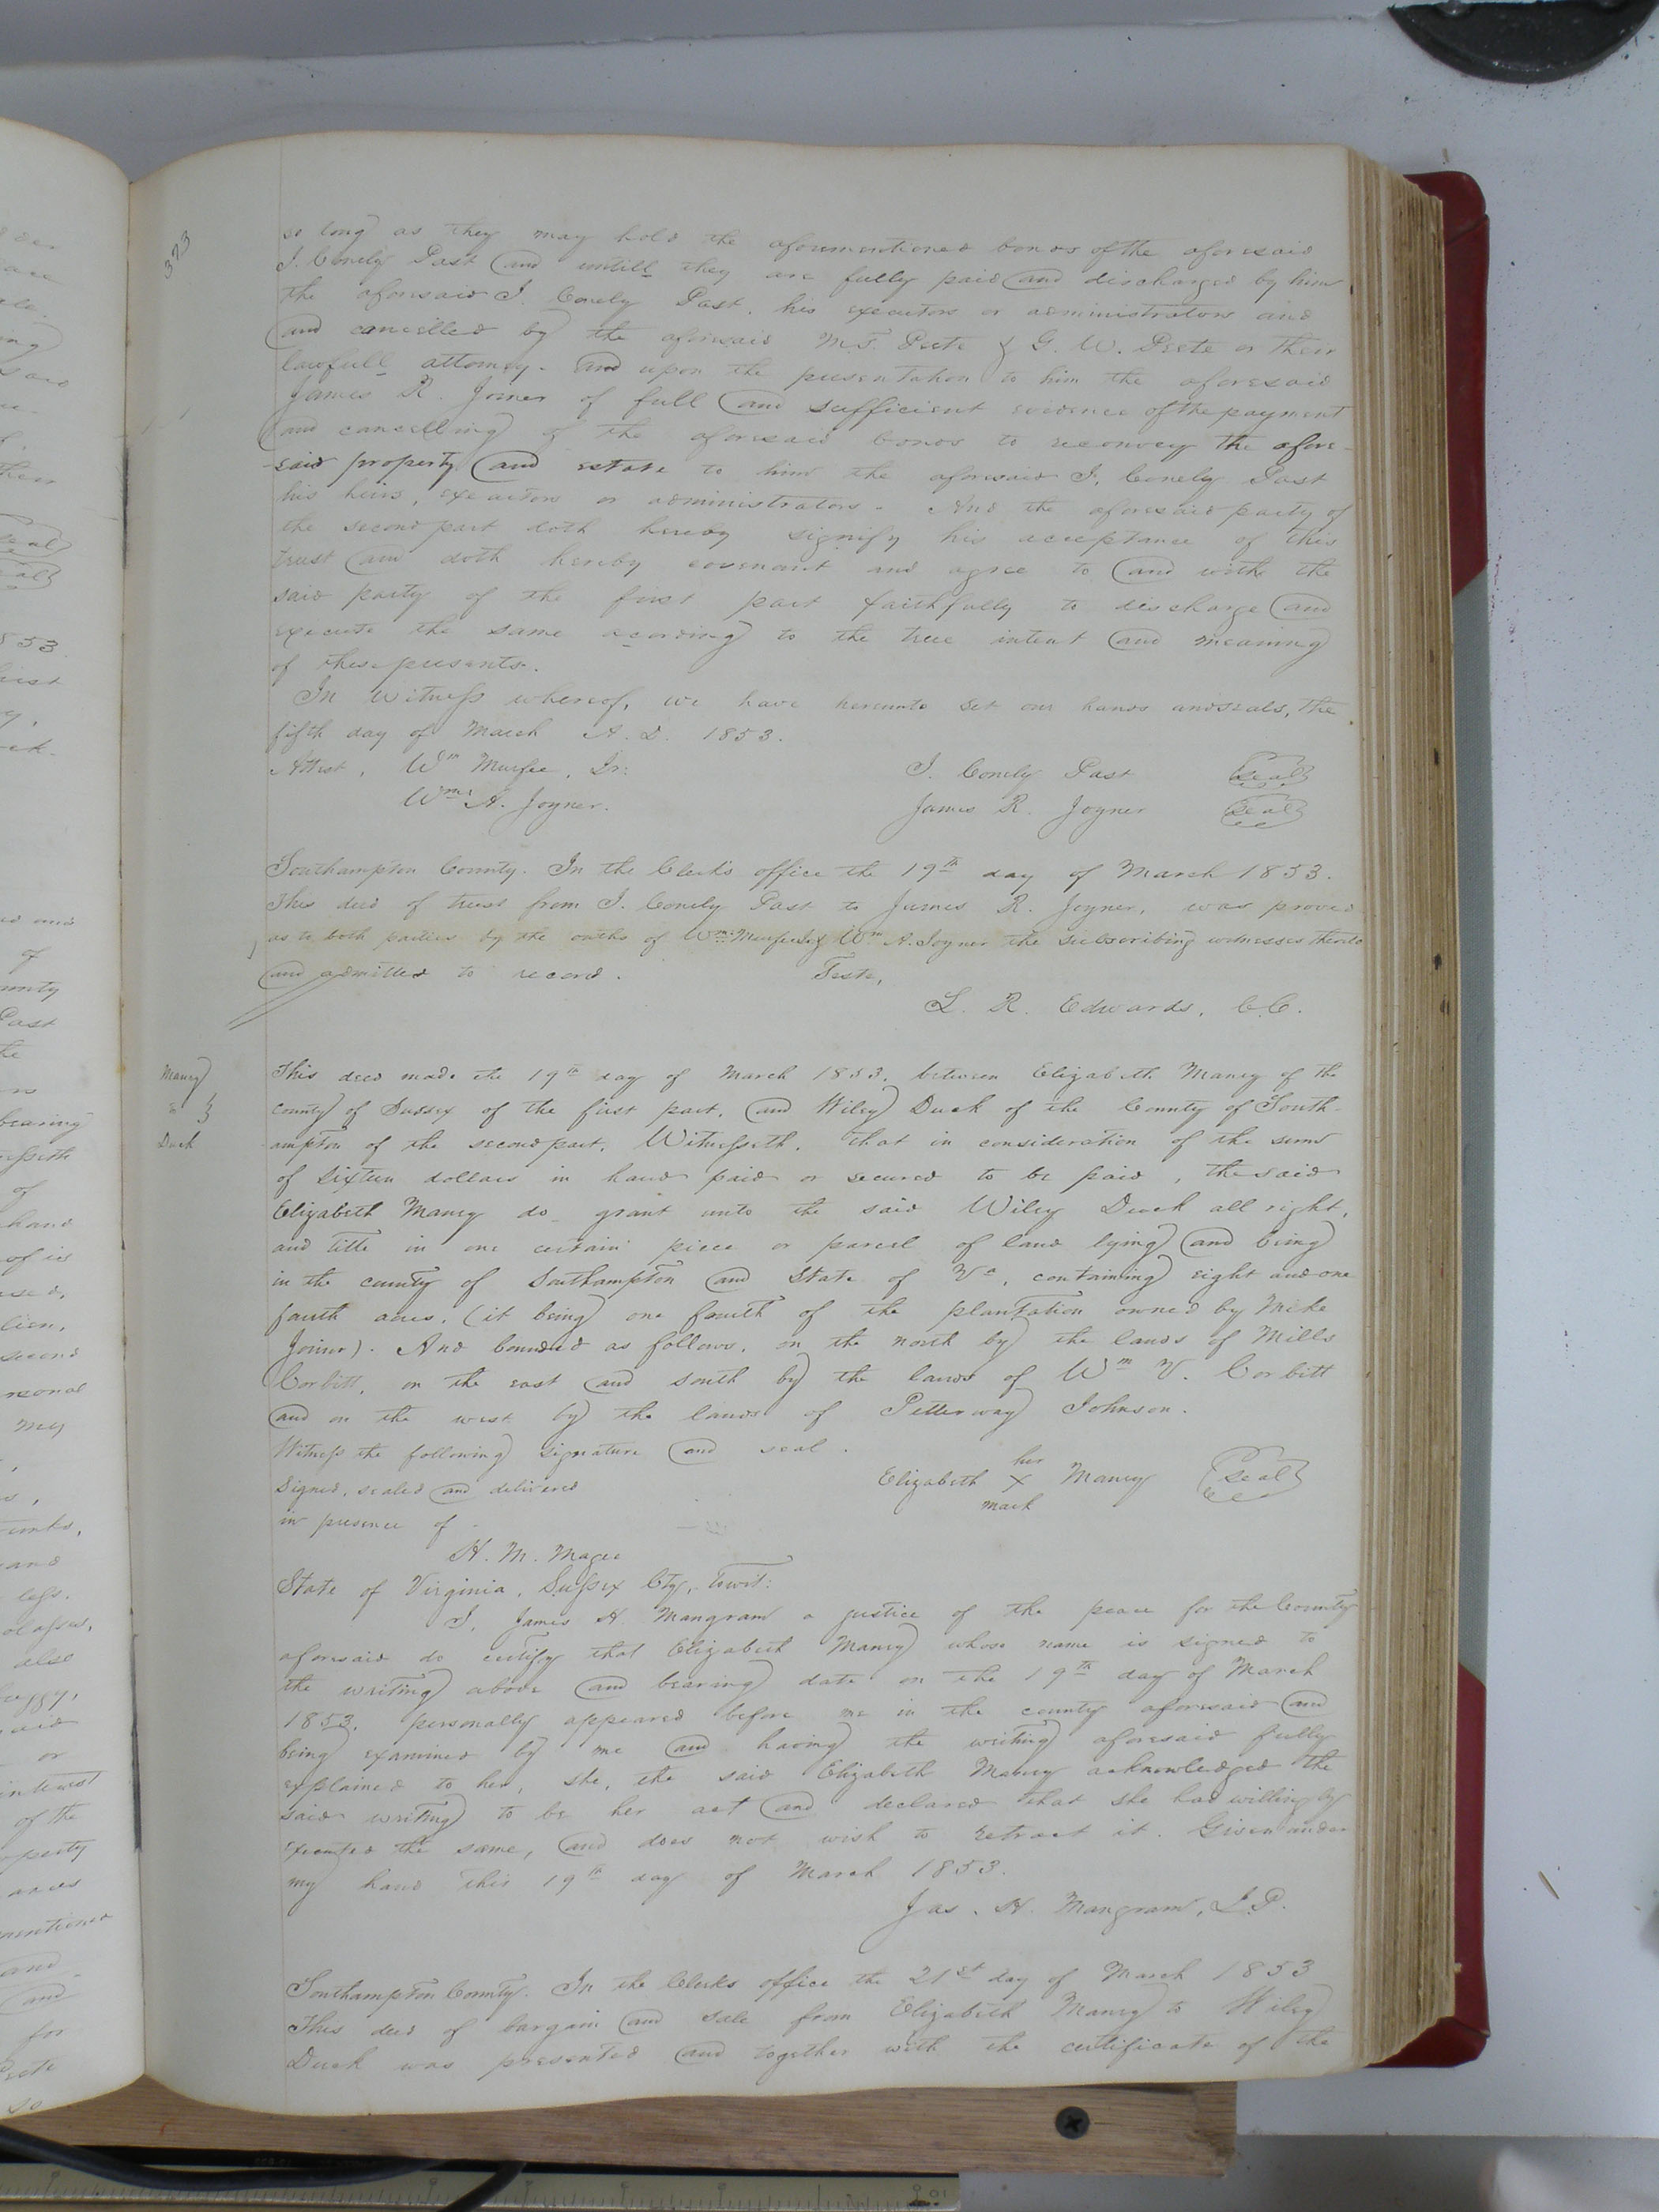 373
so long as they may hold the aforementioned bonds of the aforesaid
J. Conely Past and untill they are fully paid and discharged by him
the aforesaid J. Conely Past, his executors or administrators and
and cancelled by the aforesaid M. T. Peete & G. W. Peete or their
lawfull attorney. And upon the presentation to him the aforesaid
James R. Joiner of full and sufficient evidence of the payment
and cancelling of the aforesaid bonds to reconvey the afore-
said property and estate to him the aforesaid J. Conely Past
his heirs, executors or administrators. And the aforesaid party of
the second part doth hereby signify his acceptance of this
trust and doth hereby covenant and agree to and with the
said party of the first part faithfully to discharge and
execute the same acording to the true intent and meaning
of these presents.
In Witness whereof, we have hereunto set our hands and seals, the
fifth day of March A. D. 1853.
Attest, Wm Murfee, Sr: J. Conely Past Seal
Wm. A. Joyner. James R. Joyner Seal
Southampton County. In the Clerk's office the 19th day of March 1853.
This deed of trust from J. Conely Past to James R. Joyner, was proved
as to both parties by the oaths of Wm. Murfee Sr & Wm A. Joyner the subscribing witnesses thereto
and admitted to record. Teste,
L. R. Edwards, C.C.
Maney
to }
Duck
This deed made the 19th day of March 1853, between Elizabeth Maney of the
county of Sussex of the first part, and Wiley Duck of the County of South-
ampton of the second part, Witnesseth, that in consideration of the sum
of sixteen dollars in hand paid or secured to be paid, the said
Elizabeth Maney do grant unto the said Wiley Duck all right,
and title in one certain piece or parcel of land lying and being
in the county of Southampton and State of Va, containing eight and one
fourth acres, (it being one fourth of the plantation owned by Mike
Joiner). And bounded as follows, on the north by the lands of Mills
Corbitt, on the east and south by the lands of Wm V. Corbitt
and on the west by the lands of Petterway Johnson.
Witness the following signature and seal.
Signed, sealed and delivered
in presence of
her
Elizabeth X Maney Seal
mark
H. M. Magee
State of Virginia, Sussex Cty, Towit:
I, James H. Mangram a justice of the peace for the County
aforesaid do certify that Elizabeth Maney whose name is signed to
the writing above and bearing date on the 19th day of March
1853, personally appeared before me in the county aforesaid and
being examined by me and having the writing aforesaid fully
explained to her, she, the said Elizabeth Maney acknowledged the
said writing to be her act and declared that she had willingly
executed the same, and does not wish to retract it. Given under
my hand this 19th day of March 1853.
Jas. H. Mangram, J.P.
Southampton County. In the Clerks office the 21st day of March 1853
This deed of bargain and sale from Elizabeth Maney to Wiley
Duck was presented and together with the certificate of the